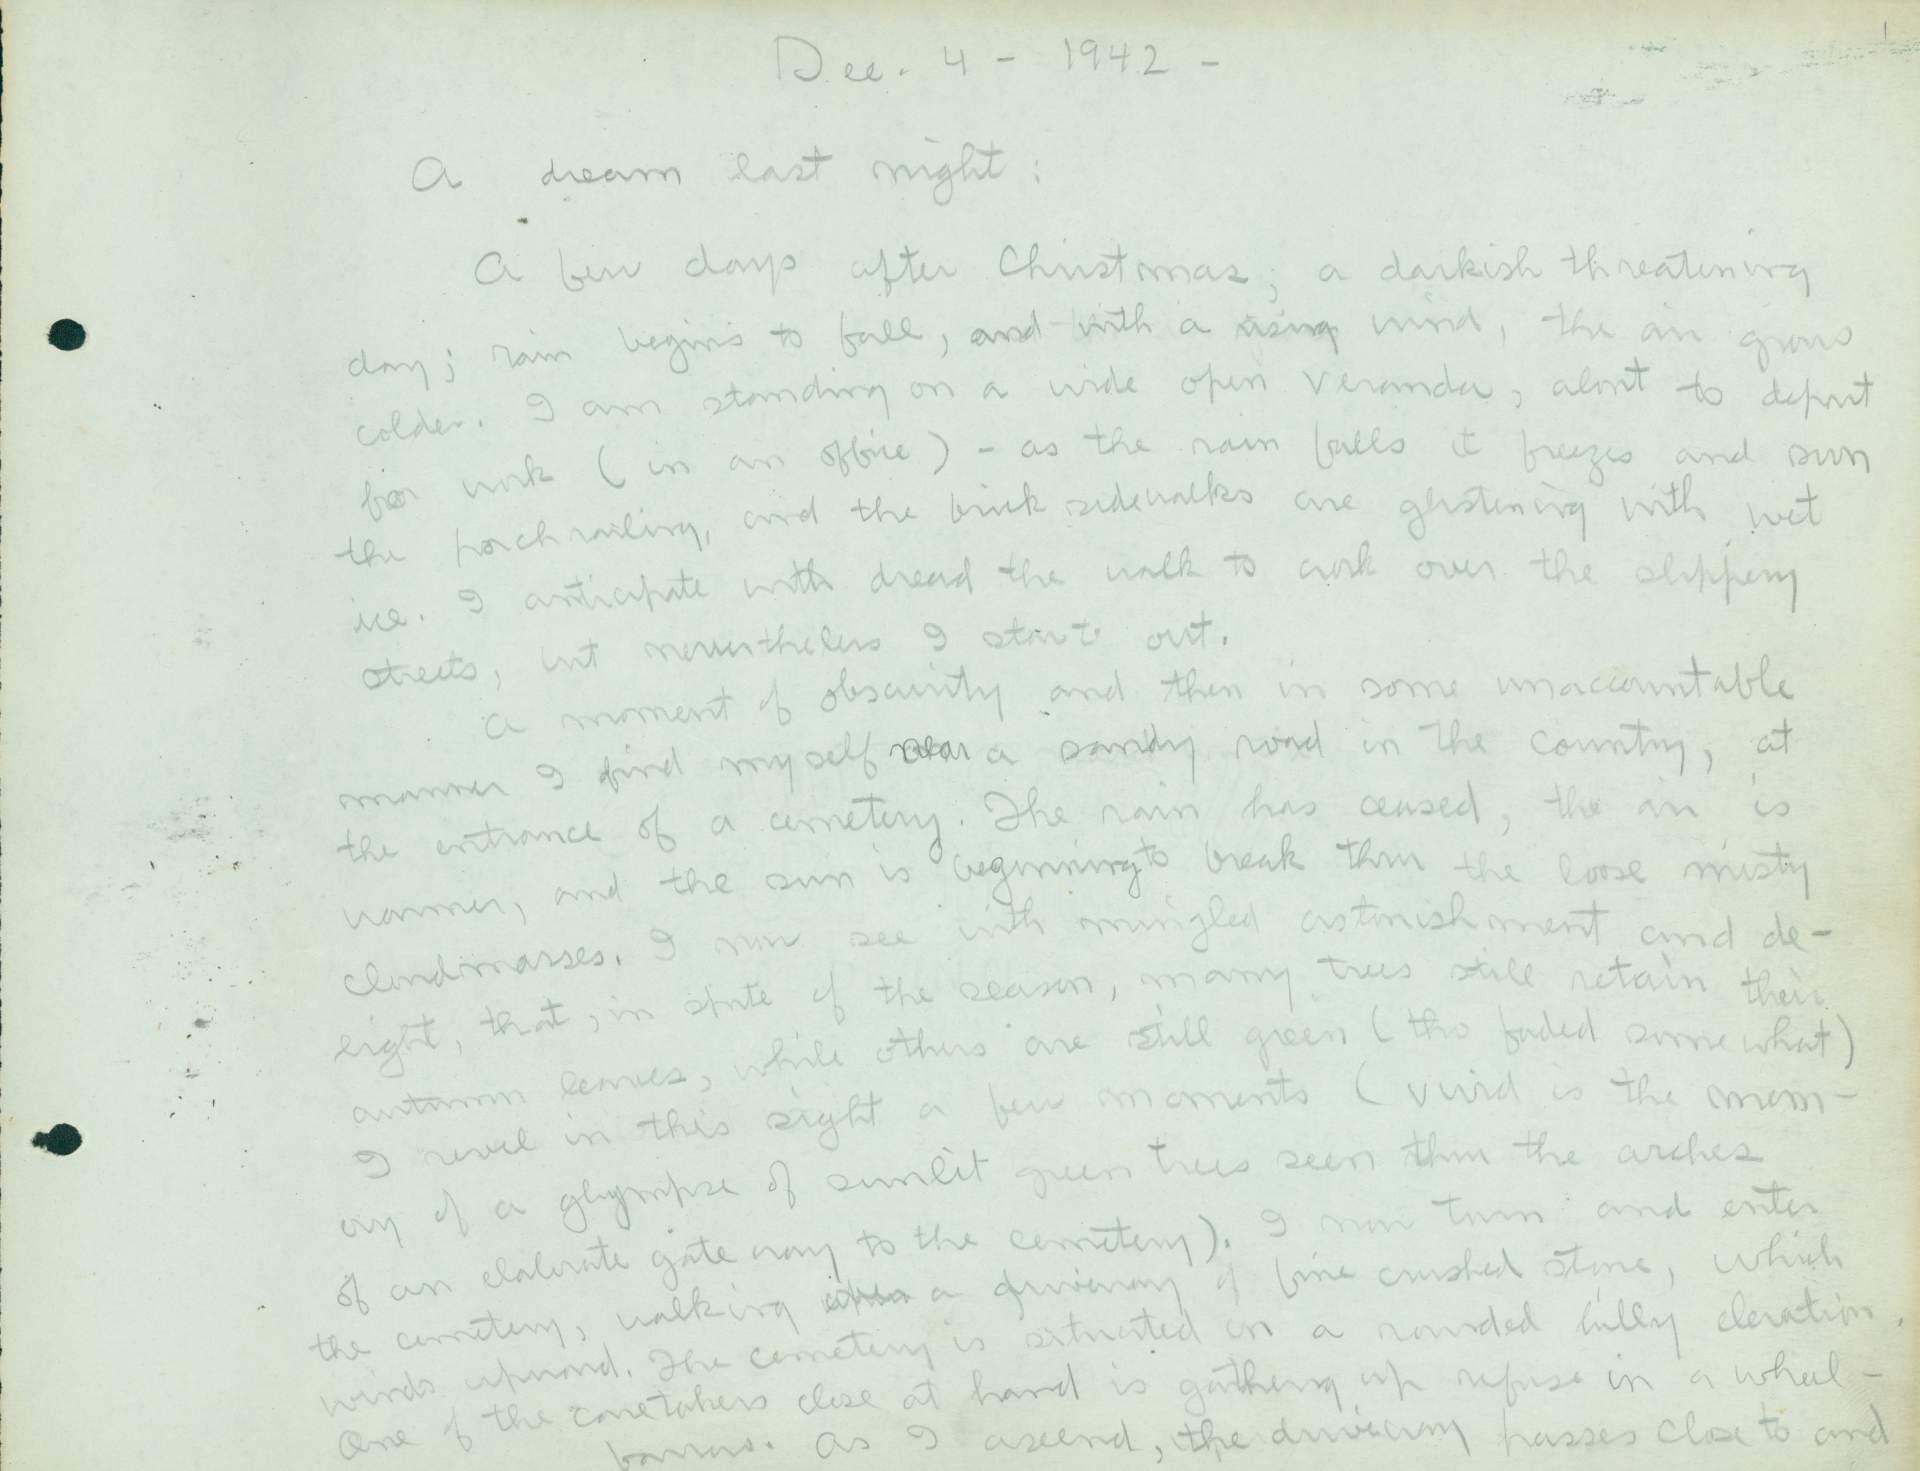 1
Dec. 4 - 1942 -
A dream last night:
A few days after Christmas; a darkish threatening
day; rain begins to fall, and with a rising wind, the air grows
colder. I am standing on a wide open veranda, about to depart
for work (in an office) - as the rain falls it freezes and on
the porch railing, and the brick sidewalks are glistening with wet
ice. I anticipate with dread the walk to work over the slippery
streets, but nevertheless I start out.
A moment of obscurity and then in some unaccountable
manner I find myself near a sandy road in the country, at
the entrance of a cemetery. The rain has ceased, the air is
warmer, and the sun is beginning to break thru the loose misty
cloudmasses. I now see with mingled astonishment and de-
light, that, in spite of the season, many trees still retain their
autumn leaves, while others are still green (tho faded somewhat)
I revel in this sight a few moments (vivid is the mem-
ory of a glympse of sunlit green trees seen thru the arches
of an elaborate gate way to the cemetery). I now turn and enter
the cemetery, walking a driveway of fine crushed stone, which
winds upward. The cemetery is situated on a rounded hilly elevation.
One of the caretakers close at hand is gathering up refuse in a wheel-
barrow. As I ascend, the driveway passes close to and